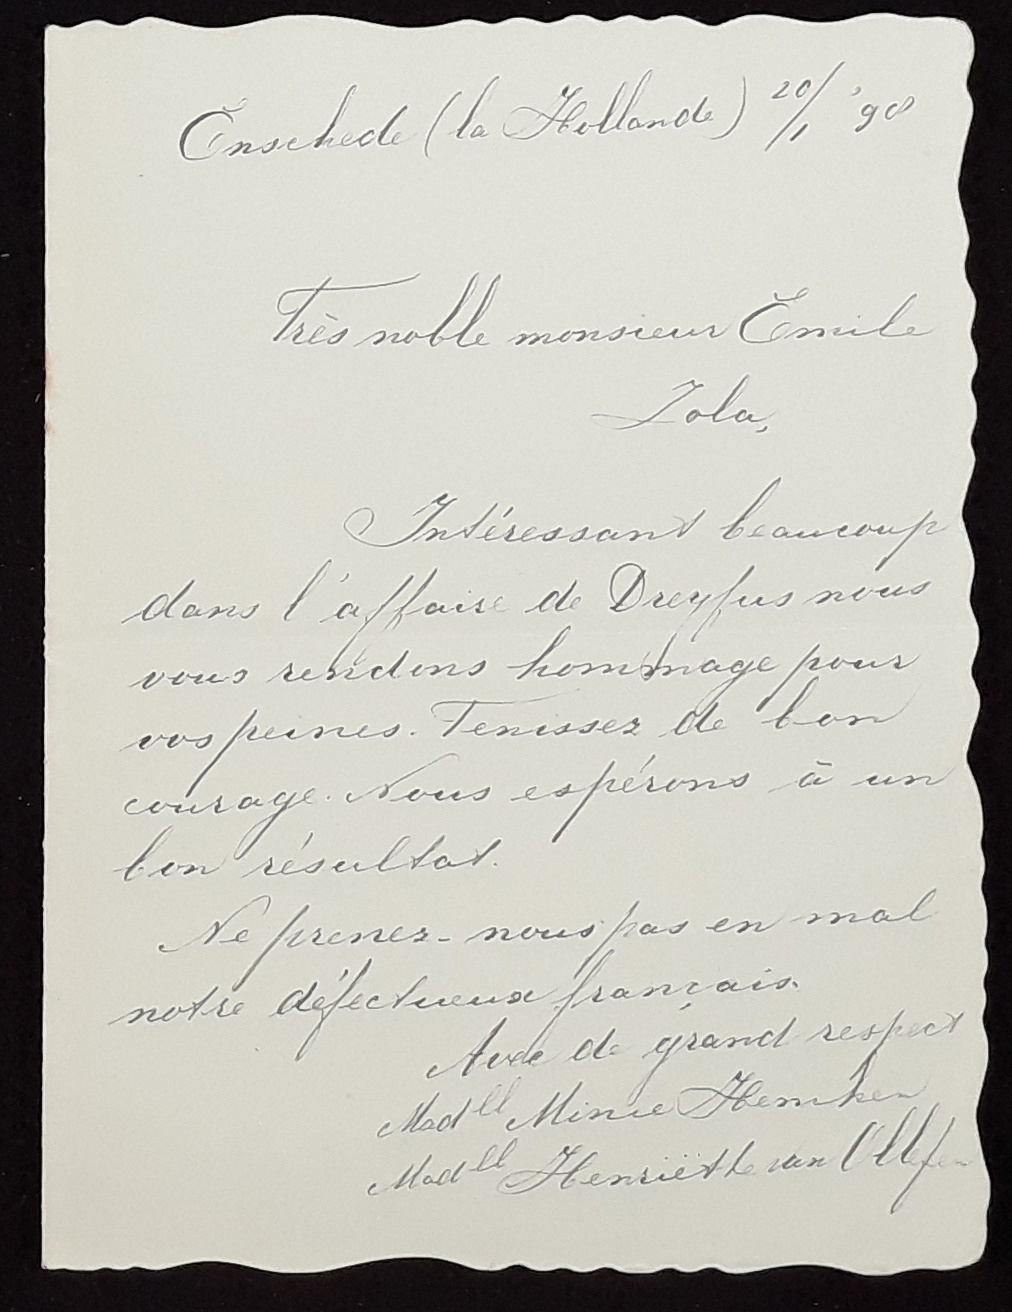 Enschede (la Hollande) 20/1 '98
Très noble monsieur Émile
Zola,
Intéressant beaucoup
dans l'affaire de Dreyfus nous
vous rendons hommage pour
vos peines. Tenissez de bon
courage. Nous espérons à un
bon résultat.
Ne prenez-nous pas en mal
notre défectueux français.
Avec de grand respect
Madll Minie Hemken
Madll Henriëtte van Ollefen